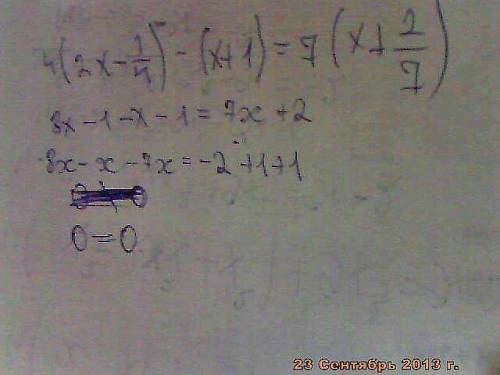 4(2x-1/4)-(x+1)=7(x+2/7)
8x-1-x-1=7x+2
8x-x-7x=-2+1+1
0=0
23 Сентябрь 2013 г.